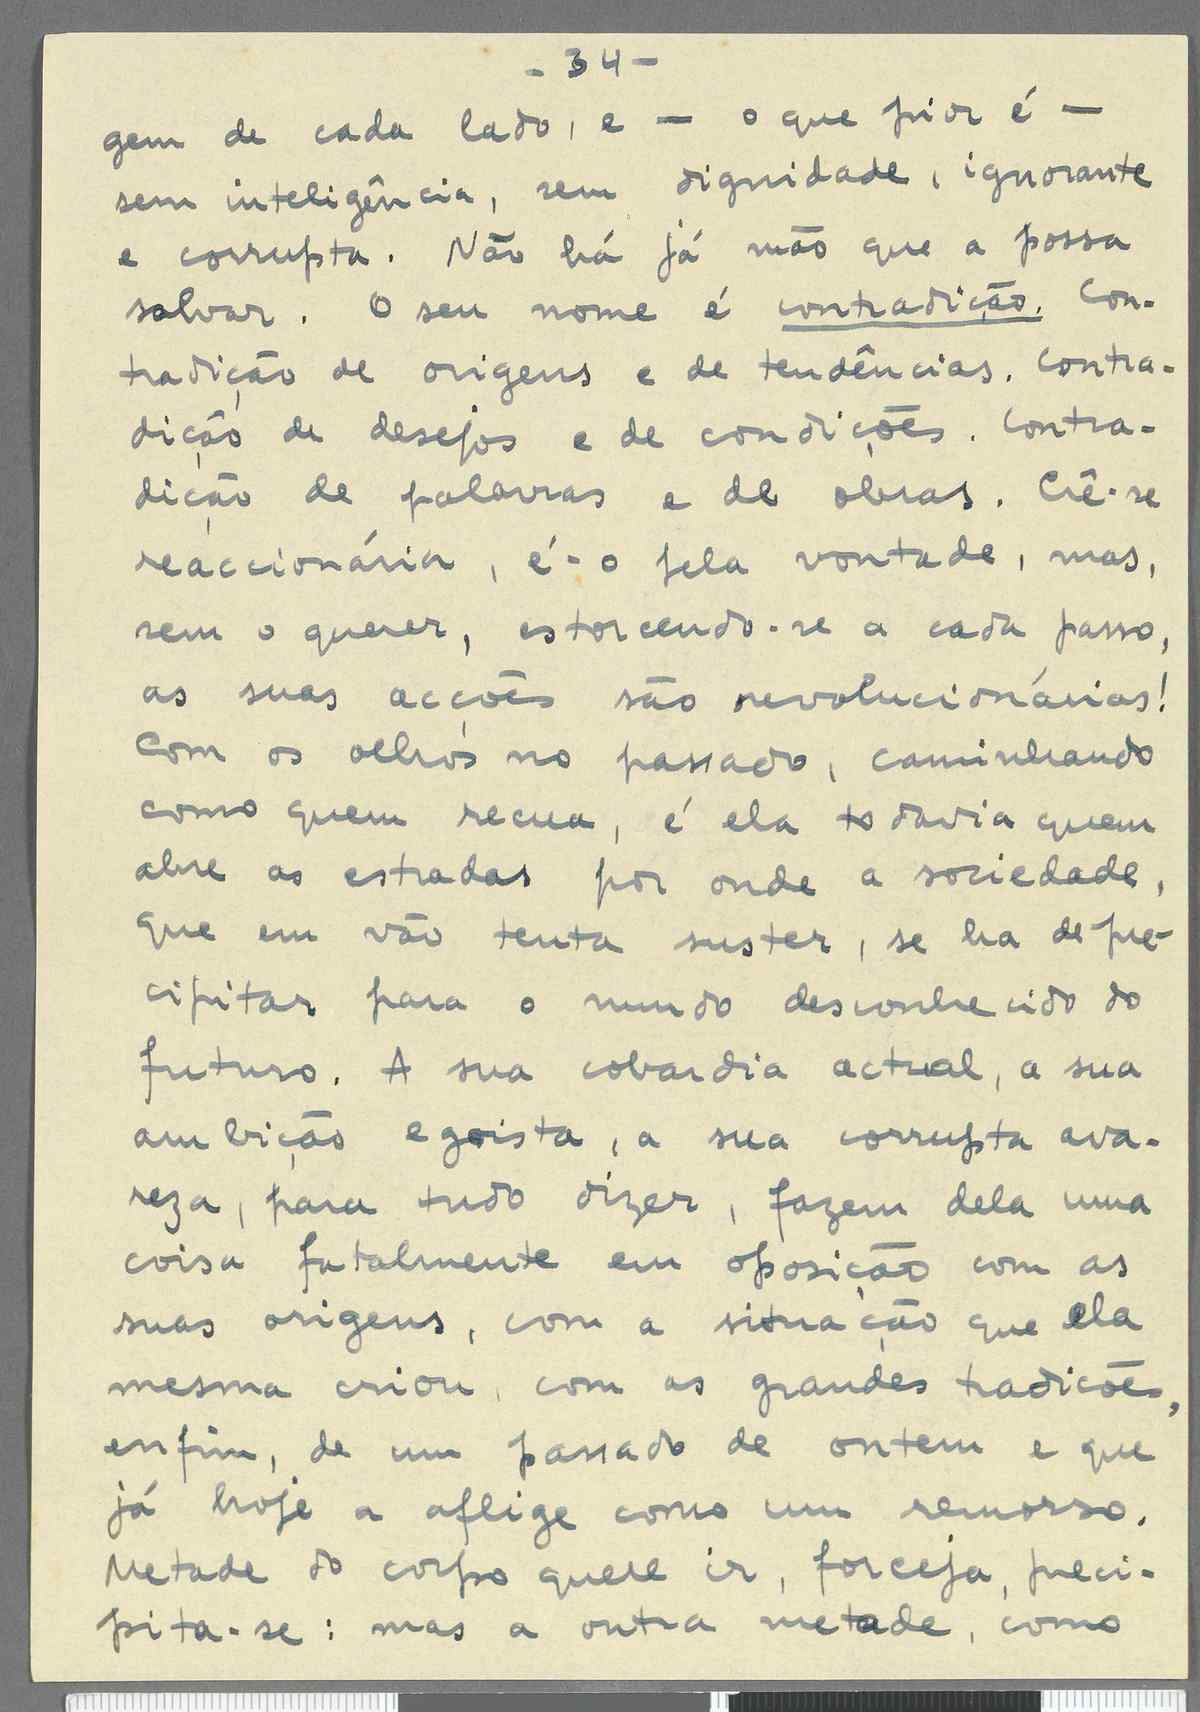 - 34 -
gem de cada lado, e — o que pior é —
sem inteligência, sem dignidade, ignorante
e corrupta. Não há já mão que a possa
salvar. O seu nome é contradição. Con-
tradição de origens e de tendências. Contra-
dição de desejos e de condições. Contra-
dição de palavras e de obras. Crê-se
reaccionária, é-o pela vontade, mas,
sem o querer, estorcendo-se a cada passo,
as suas acções são revolucionárias!
Com os olhos no passado, caminhando
como quem recua, é ela todavia quem
abre as estradas por onde a sociedade,
que em vão tenta suster, se ha de pre-
cipitar para o mundo desconhecido do
futuro. A sua cobardia actual, a sua
ambição egoista, a sua corrupta ava-
reza, para tudo dizer, fazem dela uma
coisa fatalmente em oposição com as
suas origens, com a situação que ela
mesma criou, com as grandes tradições,
enfim, de um passado de ontem e que
já hoje a aflige como um remorso.
Metade do corpo quere ir, forceja, preci-
pita-se: mas a outra metade, como